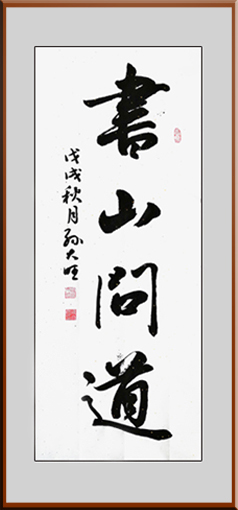 書山問道
戊戌秋月孫大旺